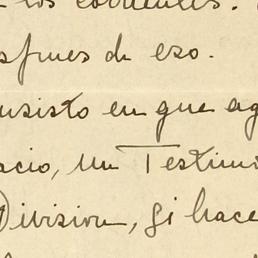 los corrientes.
después de eso.
insisto en que ag
acio, un Testimo
División, si hace